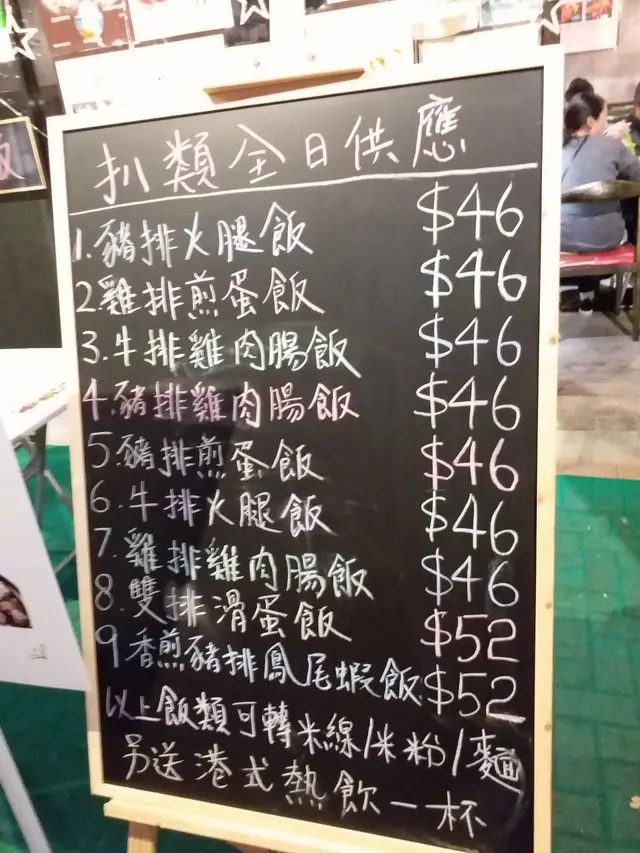 扒類全日供應
1.豬排火腿飯 $46
2.雞排煎蛋飯 $46
3.牛排雞肉腸飯 $46
4.豬排雞肉腸飯 $46
5.豬排煎蛋飯 $46
6.牛排火腿飯 $46
7.雞排雞肉腸飯 $46
8.雙排滑蛋飯 $52
9香煎豬排鳳尾蝦飯 $52
以上飯類可轉米線/米粉/麵
另送港式熱飲一杯